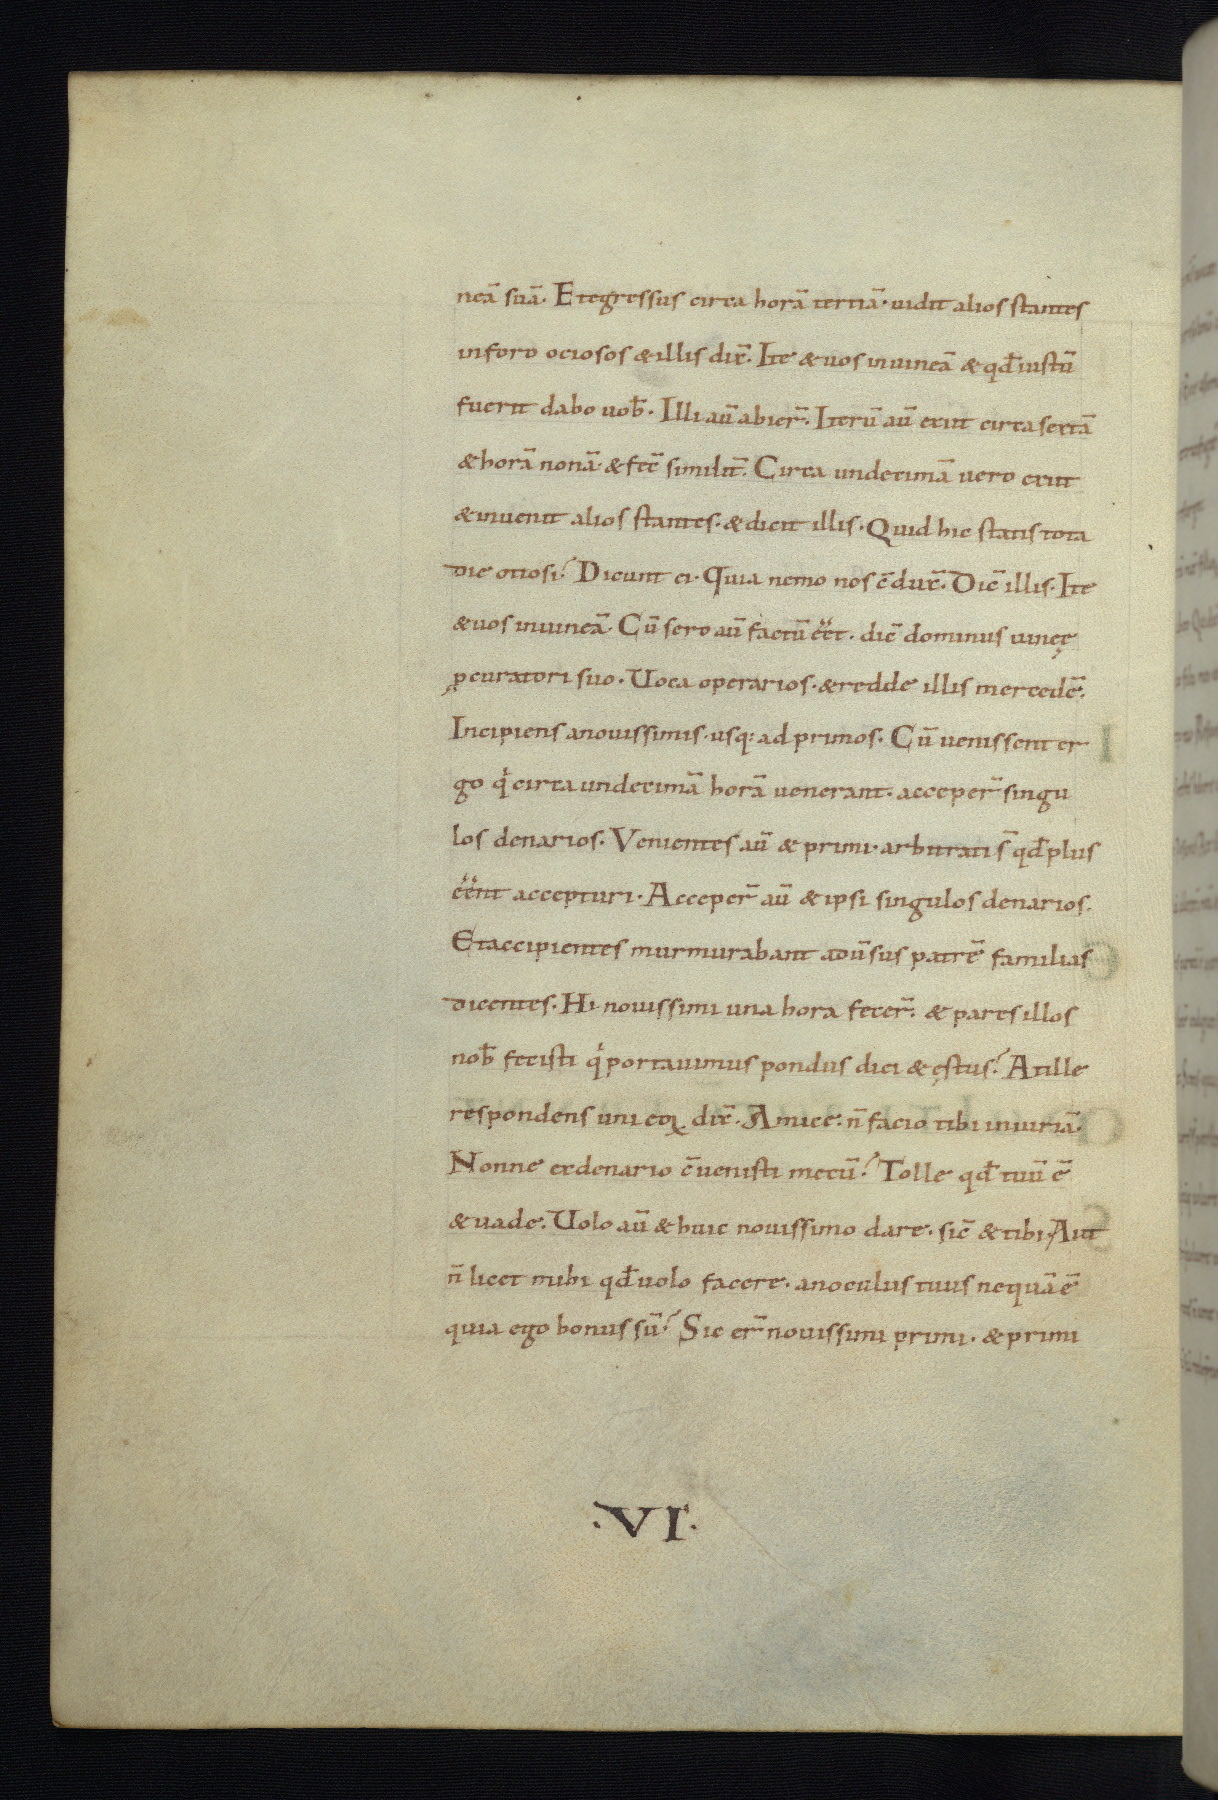 neā suā. Et egressus circa horā tertiā. uidit alios stantes
in foro ociosos & illis dix̄. Ite & uos in uineā & qđ iustū
fuerit dabo uob̄. Illi aū abier̄. Iterū aū exiit circa sextā
& horā nonā. & fec̄ similit̄. Circa undecimā uero exiit
& inuenit alios stantes. & dicit illis. Quid hic statis tota
die otiosi? Dicunt ei. Quia nemo nos c̄dux̄. Dic̄ illis. Ite
& uos in uineā. Cū sero aū factū eēt. dic̄ dominus uineę
ꝓcuratori suo. Uoca operarios. & redde illis mercedē.
Incipiens a nouissimis. usq; ad primos. Cū uenissent er
go qͥ circa undecimā horā uenerant. acceper̄ singu
los denarios. Venientes aū & primi. arbitrati s̄ qđ plus
eēnt accepturi. Acceper̄ aū & ipsi singulos denarios.
Et accipientes murmurabant adūsus patrē familias
dicentes. Hi nouissimi una hora fecer̄. & pares illos
nob̄ fecisti qͥ portauimus pondus diei & ęstus? At ille
respondens uni eoꝝ dix̄. Amice. n̄ facio tibi iniuriā.
Nonne ex denario c̄uenisti mecū? Tolle qđ tuū ē
& uade. Uolo aū & huic nouissimo dare. sic̄ & tibi. Aut
n̄ licet mihi qđ uolo facere. an oculus tuus nequā ē
quia ego bonus sū? Sic er̄ nouissimi primi. & primi
.VI.